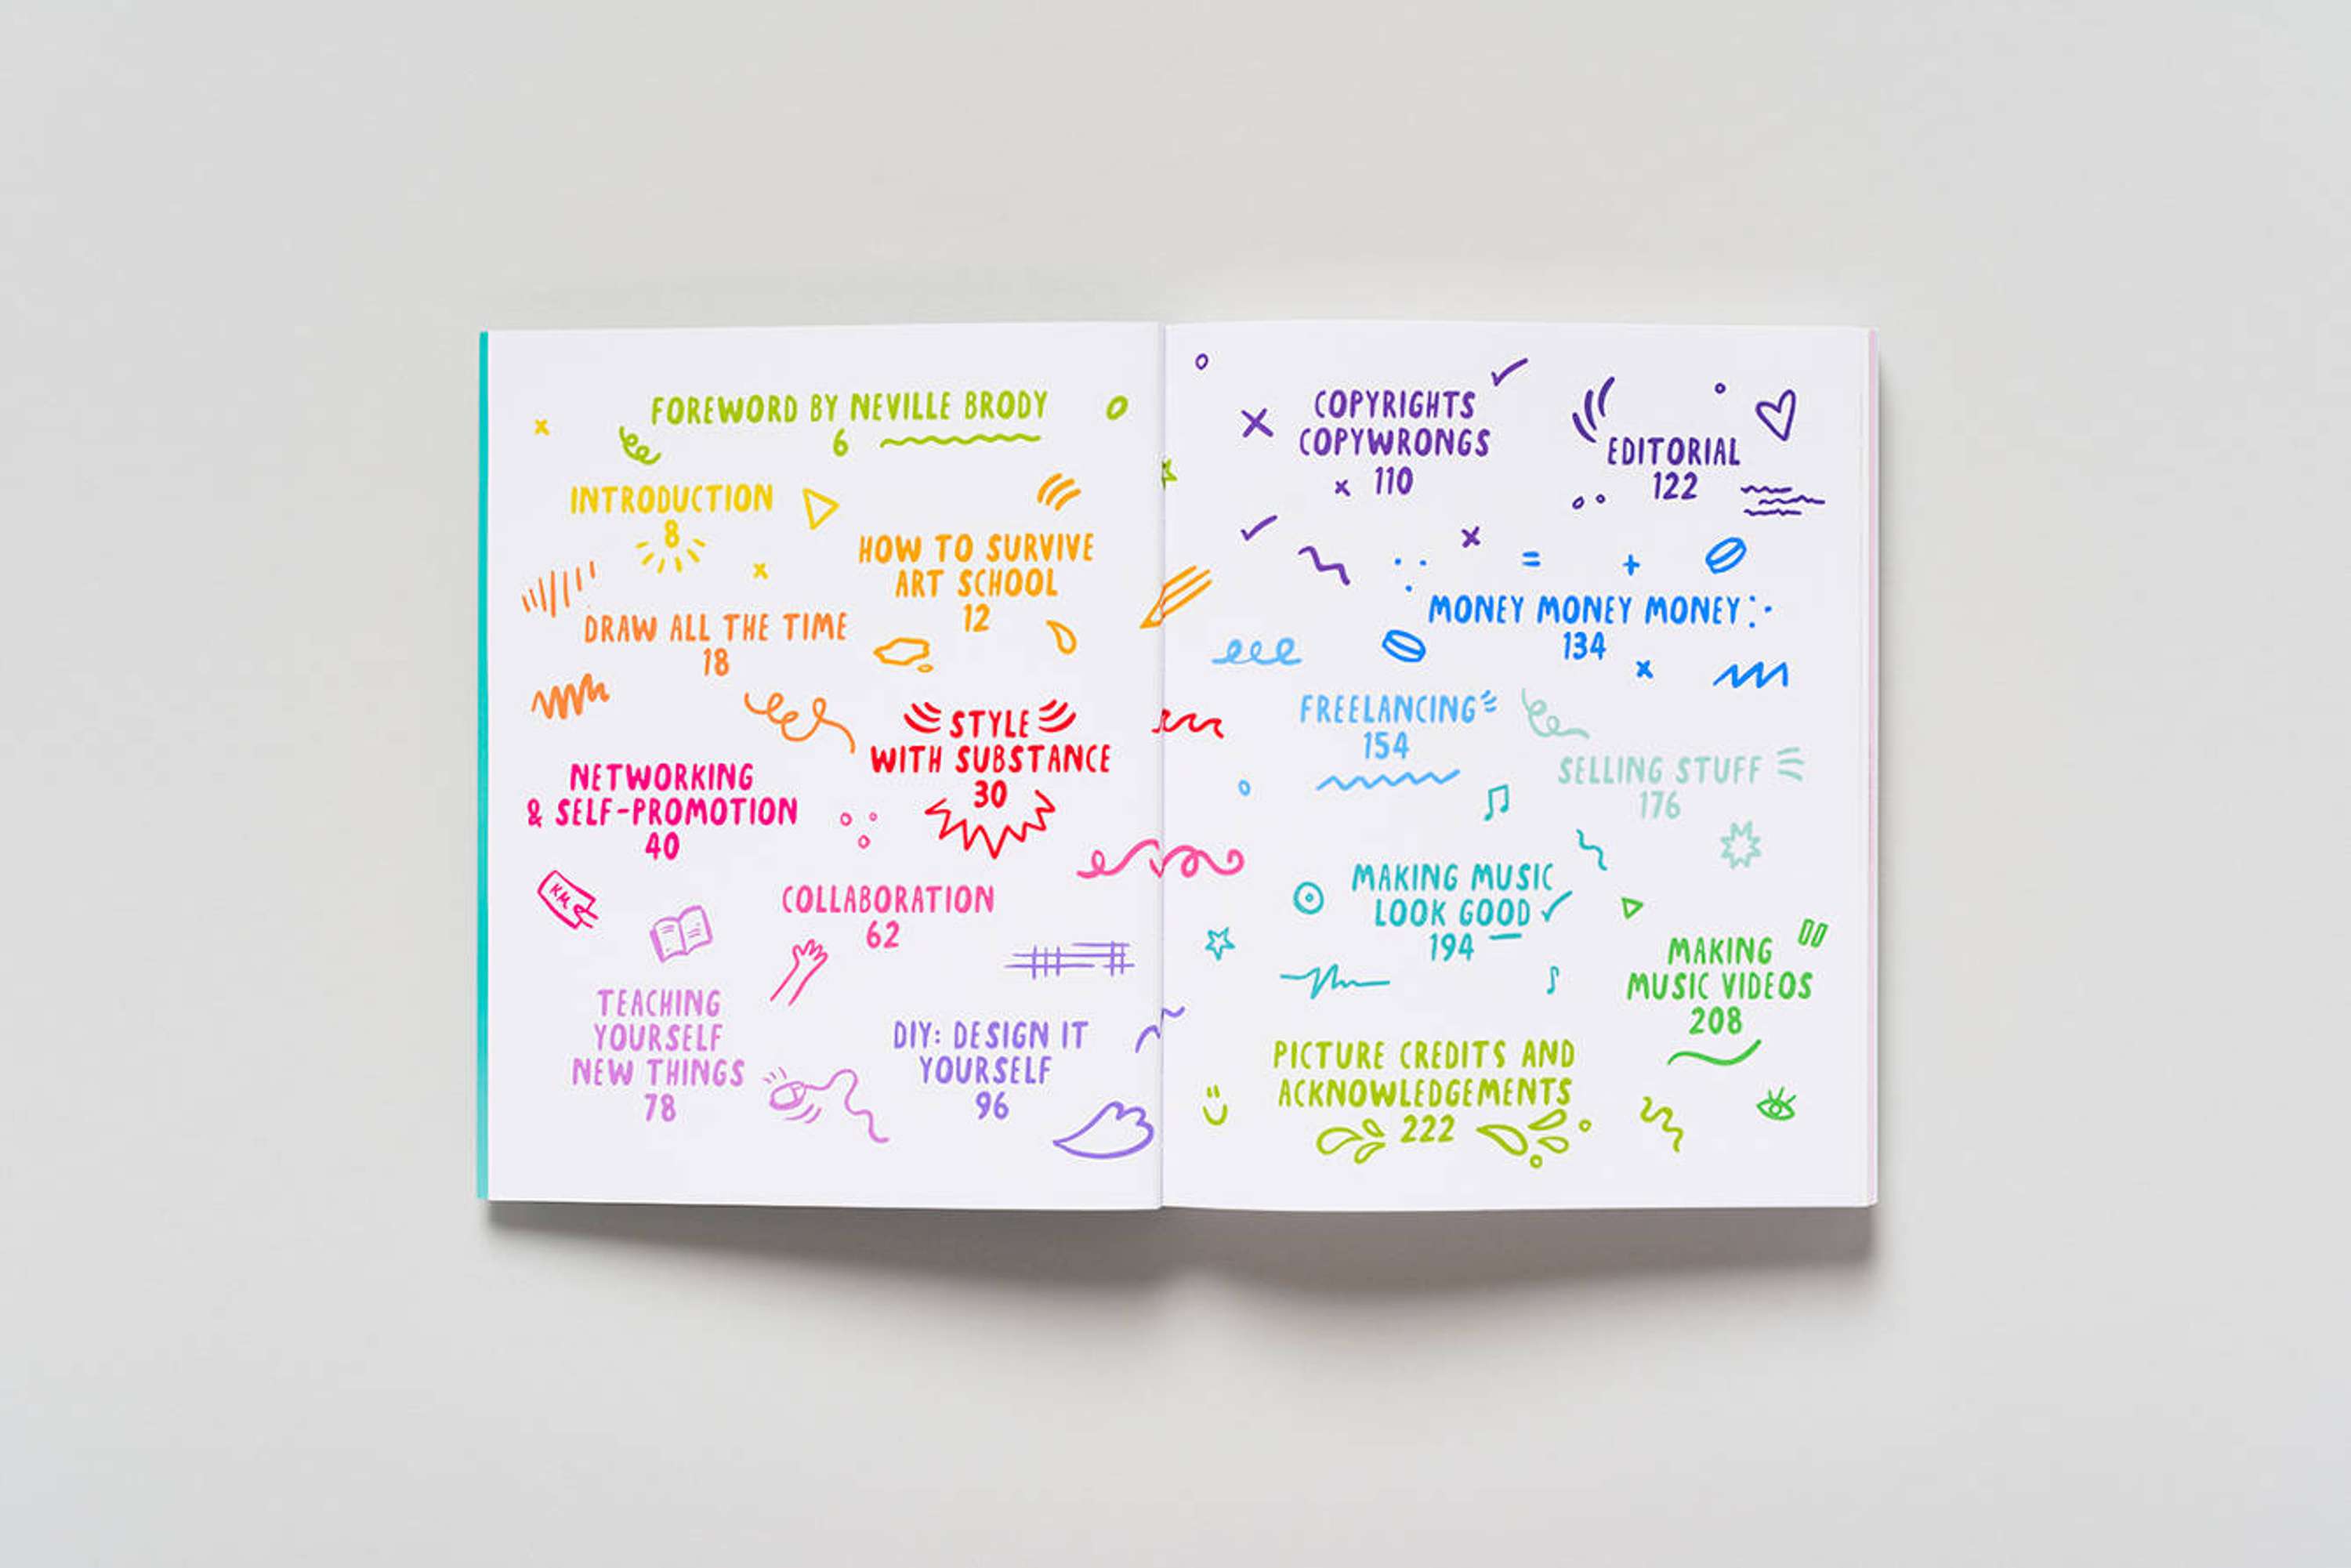 FOREWORD BY NEVILLE BRODY
6
INTRODUCTION
8
HOW TO SURVIVE
ART SCHOOL
12
DRAW ALL THE TIME
18
STYLE
WITH SUBSTANCE
30
NETWORKING
& SELF-PROMOTION
40
KM
COLLABORATION
62
TEACHING
YOURSELF
NEW THINGS
78
DIY: DESIGN IT
YOURSELF
96
COPYRIGHTS
COPYWRONGS
110
EDITORIAL
122
MONEY MONEY MONEY
134
FREELANCING
154
SELLING STUFF
176
MAKING MUSIC
LOOK GOOD
194
MAKING
MUSIC VIDEOS
208
PICTURE CREDITS AND
ACKNOWLEDGEMENTS
222